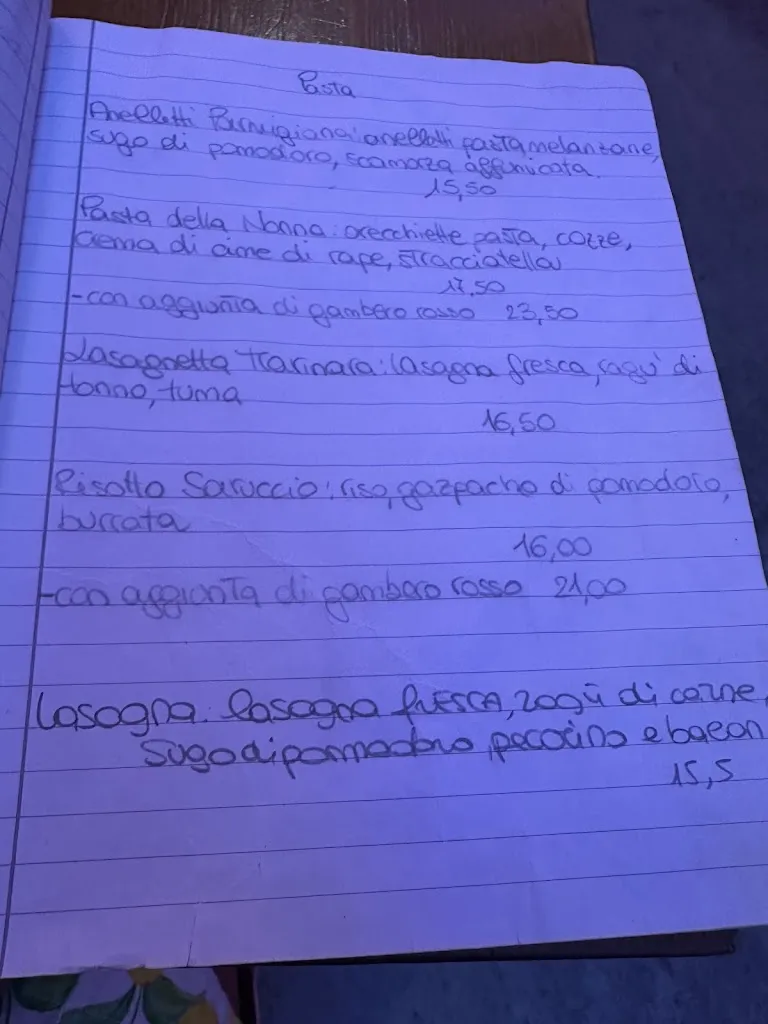 Pasta
Anelletti Parmigiana: anelletti pasta, melanzane,
sugo di pomodoro, scamorza affumicata.
15,50
Pasta della Nonna: orecchiette pasta, cozze,
crema di cime di rape, stracciatella
17,50
-con aggiunta di gambero rosso 23,50
Lasagnetta Marinara: lasagna fresca, ragu' di
tonno, tuma
16,50
Risotto Saruccio: riso, gazpacho di pomodoro,
burrata
16,00
-con aggiunta di gambero rosso 21,00
Lasagna: lasagna fRESCA, ragù di carne,
Sugo di pommodoro, pecorino e bacon
15,5